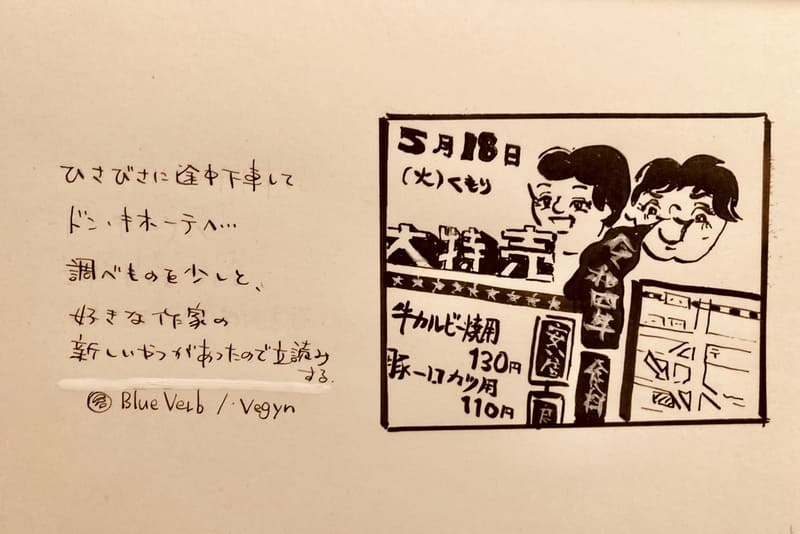 ひさびさに途中下車して
ドン・キホーテへ…
調べものを少しと、
好きな作家の
新しいやつがあったので立読み
する.
Blue Verb / Vegyn
5月18日
(火)くもり
大特売
令和四年
牛カルビー焼用
130円
豚一口カツ用
110円